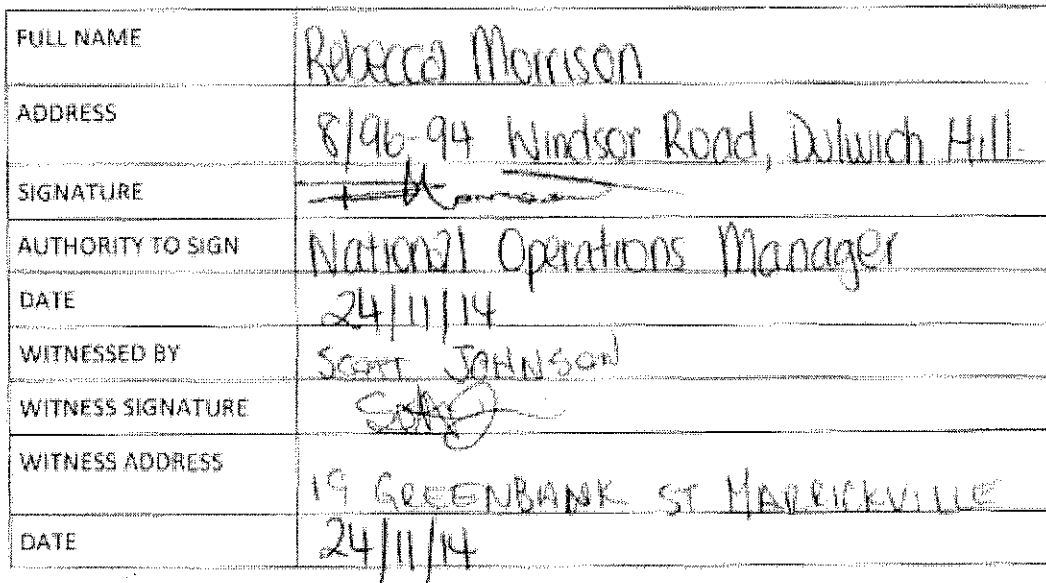 FULL NAME Rebecca Morrison
ADDRESS 8/96-94 Windsor Road, Dulwich Hill.
SIGNATURE
AUTHORITY TO SIGN National Operations Manager
DATE 24/11/14
WITNESSED BY SCOTT JOHNSON
WITNESS SIGNATURE
WITNESS ADDRESS 19 GREENBANK ST MARRICKVILLE
DATE 24/11/14